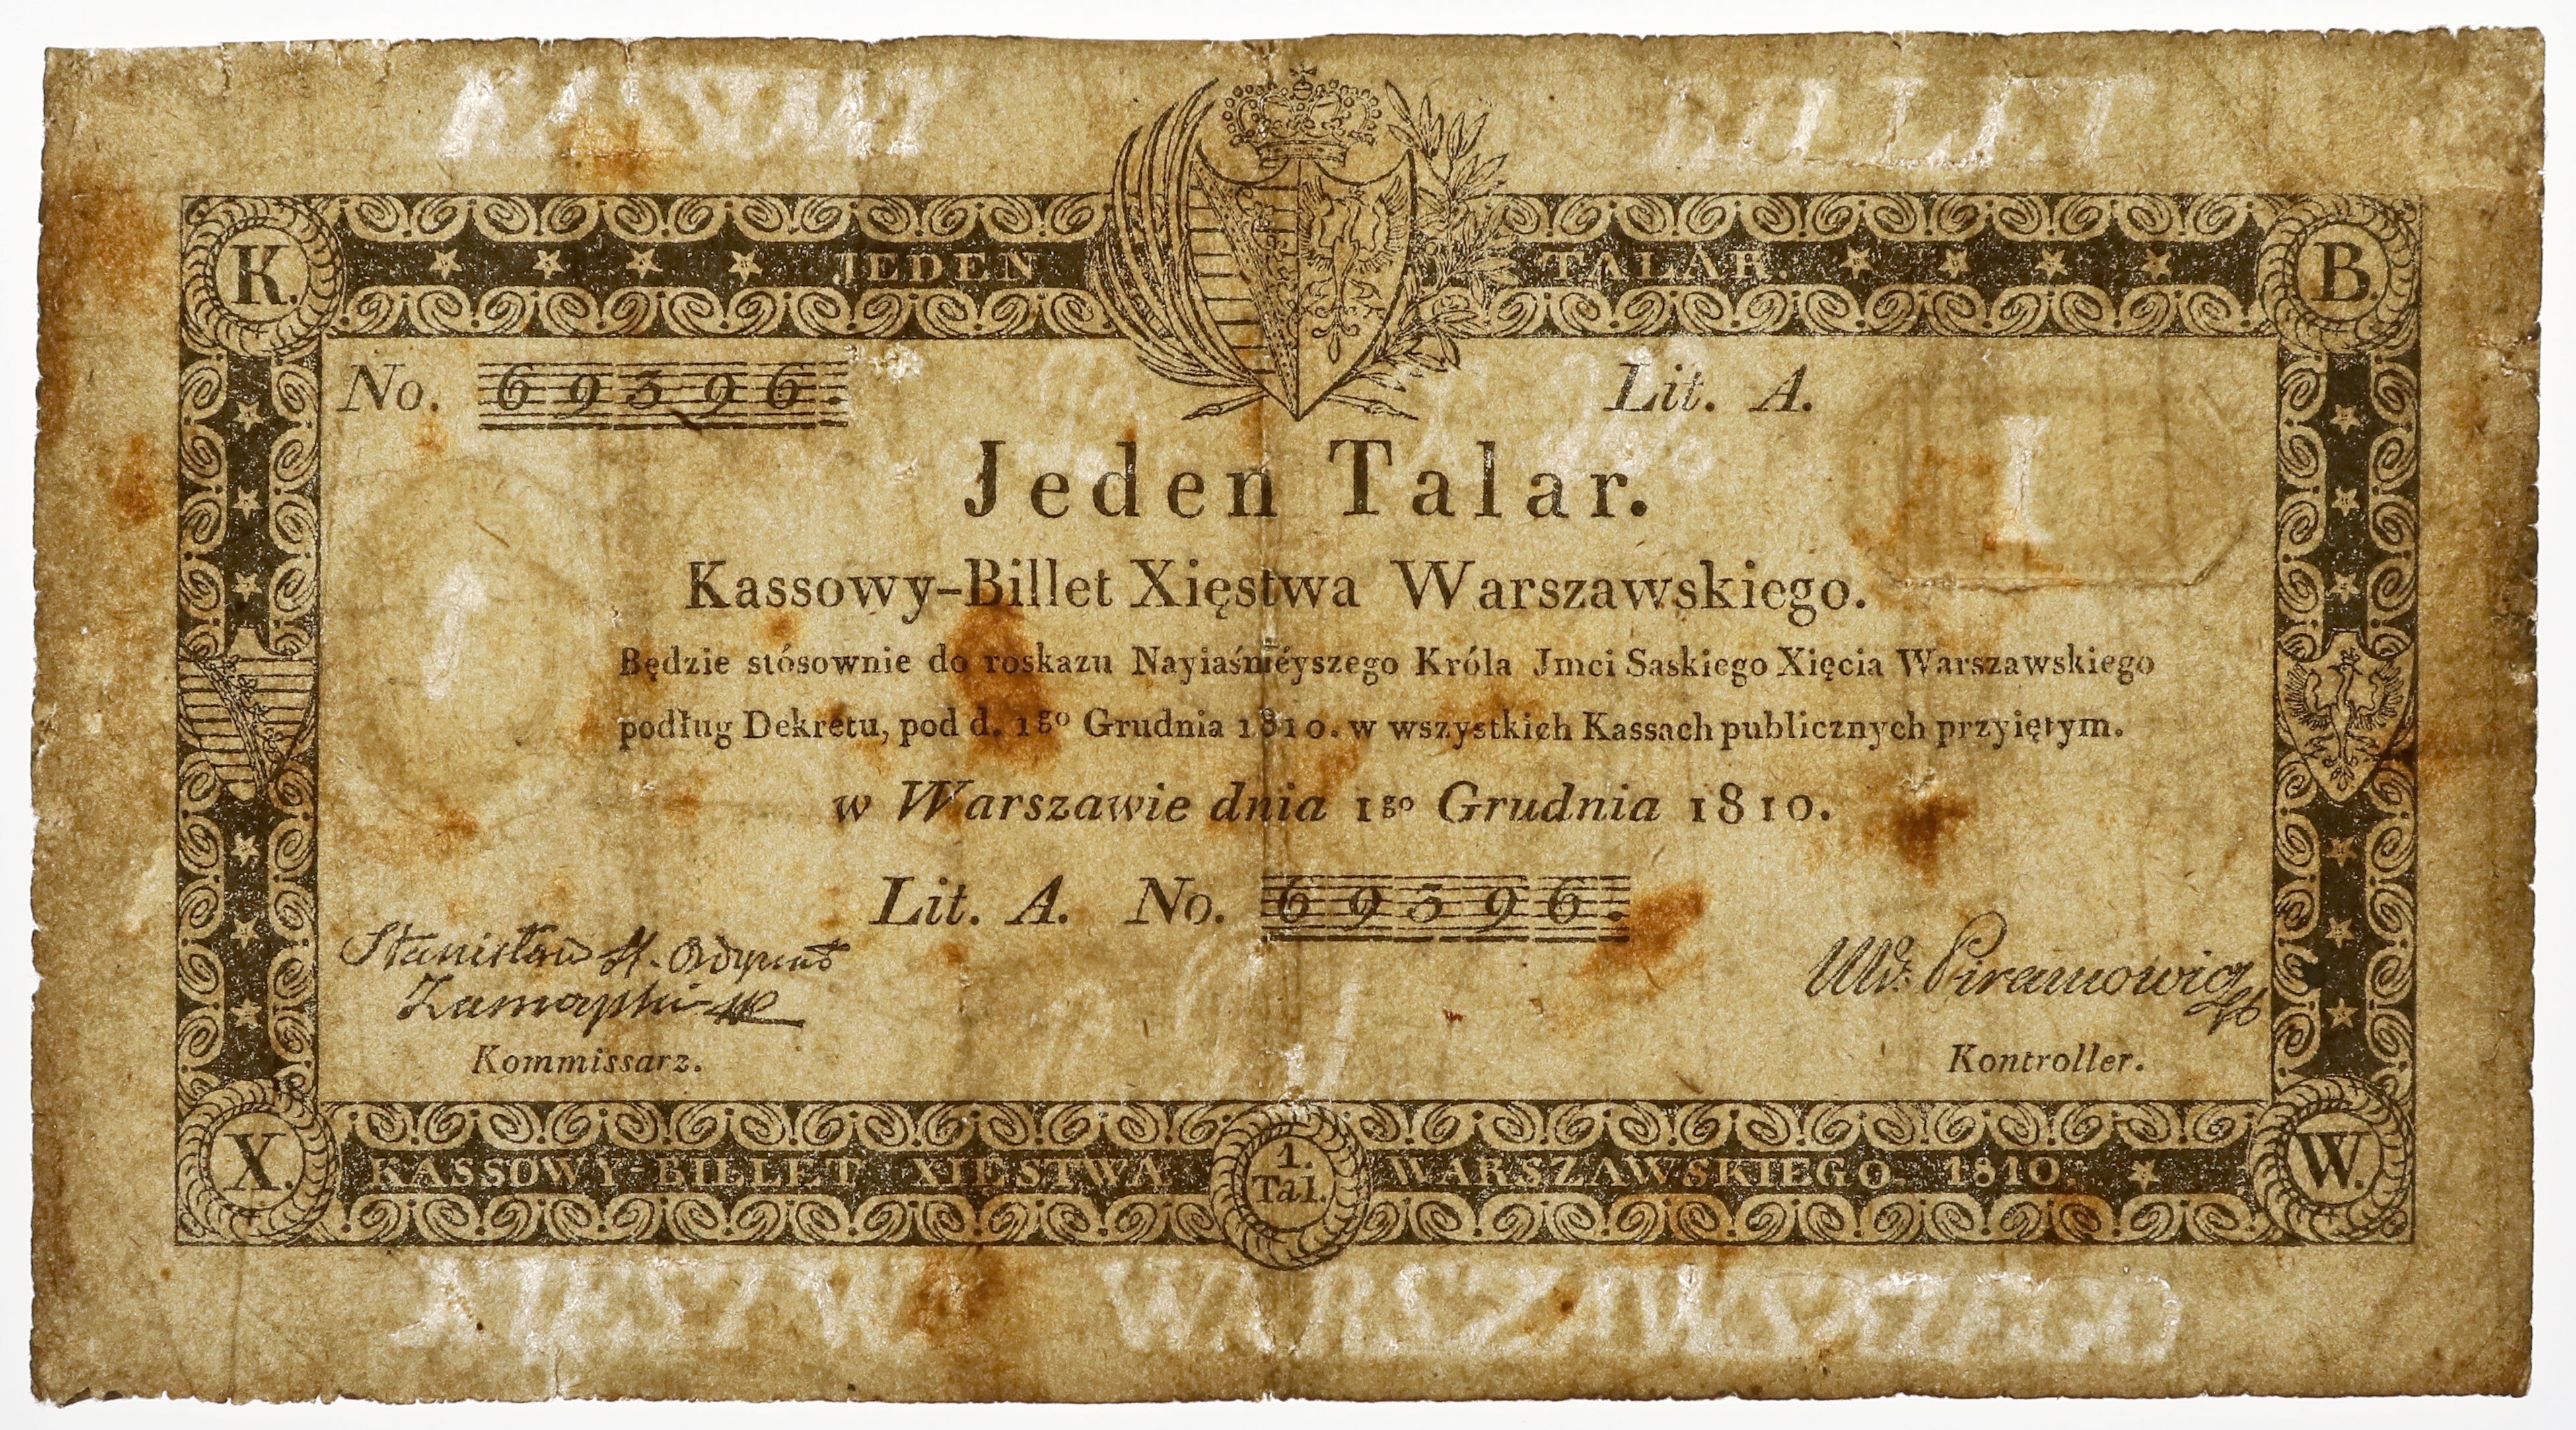 KASSOWY BILLET
K. JEDEN TALAR. B.
No. 69396. Lit. A.
I
Jeden Talar.
Kassowy-Billet Xięstwa Warszawskiego.
Będzie stósownie do roskazu Nayiaśnieyszego Króla Jmci Saskiego Xięcia Warszawskiego
podług Dekretu, pod d. 1go Grudnia 1810. w wszystkich Kassach publicznych przyiętym.
w Warszawie dnia 1go Grudnia 1810.
Lit. A. No. 69396.
Stanisław H. Ordynat
Zamoyski
Kommissarz. Kontroller.
X. KASSOWY-BILLET XIĘSTWA 1. Tal. WARSZAWSKIEGO. 1810. W.
XIĘSTWA WARSZAWSKIEGO